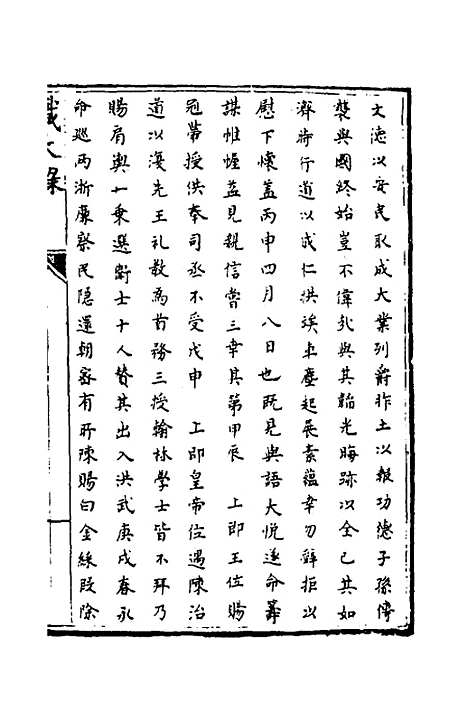 文德以安民取成大業列爵胙土以報功德子孫傳
襲與國終始豈不偉哉與其韜光晦跡以全己其如
濟將行道以成仁洪竢車塵起展素蘊幸勿辭拒以
慰下懷蓋丙申四月八日也既見與語大悅遂命籌
謀帷幄益見親信嘗三幸其第甲辰　上即王位賜
冠帶授供奉司丞不受戊申　上即皇帝位遇陳治
道以復先王禮教為首務三授翰林學士皆不拜乃
賜肩輿一乗選衛士十人贊其出入洪武庚戌春永
命巡兩浙廉察民隱還朝密有所陳賜白金綵段除